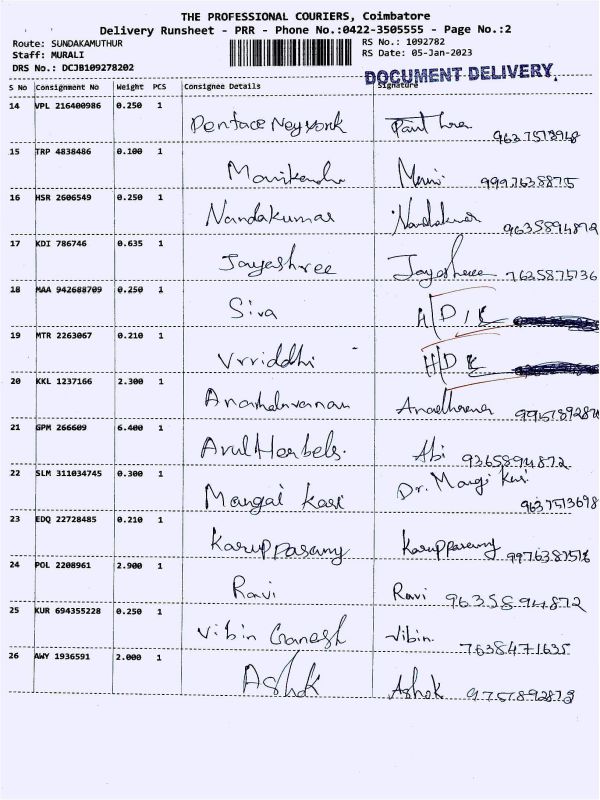 THE PROFESSIONAL COURIERS, Coimbatore
Delivery Runsheet - PRR - Phone No.:0422-3505555 - Page No.:2
Route: SUNDAKAMUTHUR RS No.: 1092782
Staff: MURALI RS Date: 05-Jan-2023
DRS No.: DCJB109278202
DOCUMENT DELIVERY
S No Consignment No Weight PCS Consignee Details Signature
14 VPL 216400986 0.250 1
15 TRP 4838486 0.100 1 Mani
16 HSR 2606549 0.250 1 Nandakumar Nandakumar 9635894872
17 KDI 786746 0.635 1 Jayeshree Jayeshree 7635875736
18 MAA 942688709 0.250 1 Siva
19 MTR 2263067 0.210 1 Vrriddhi
20 KKL 1237166 2.300 1
21 GPM 266609 6.400 1 Arul Herbels. Abi 9365894872
22 SLM 311034745 0.300 1 Mangai Kasi Dr. 9637513698
23 EDQ 22728485 0.210 1 Karuppasamy Karuppasamy
24 POL 2208961 2.900 1 Ravi Ravi 9635894872
25 KUR 694355228 0.250 1 Vibin Ganesh Vibin. 7638471635
26 AWY 1936591 2.000 1 Ashok Ashok 9757892873